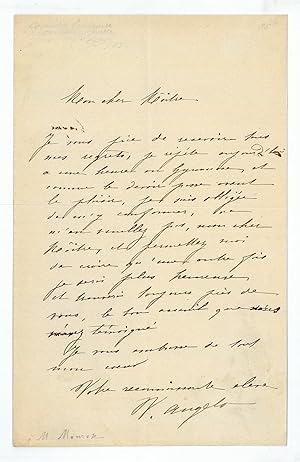 Mon cher Maître
Je vous prie de recevoir tous
mes regrets, je répète aujourd'hui
a une heure au Gymnase, et
comme le devoir passe avant
le plaisir, je suis obligée
de m'y conformer, ne
m'en veuillez pas, mon cher
Maître, et permettez moi
de croire qu'une autre fois
je serai plus heureuse,
et trouverai toujours près de
vous, le bon accueil que
témoigné
Je vous embrasse de tout
mon cœur
Votre reconnaissante élève
V. Angelo